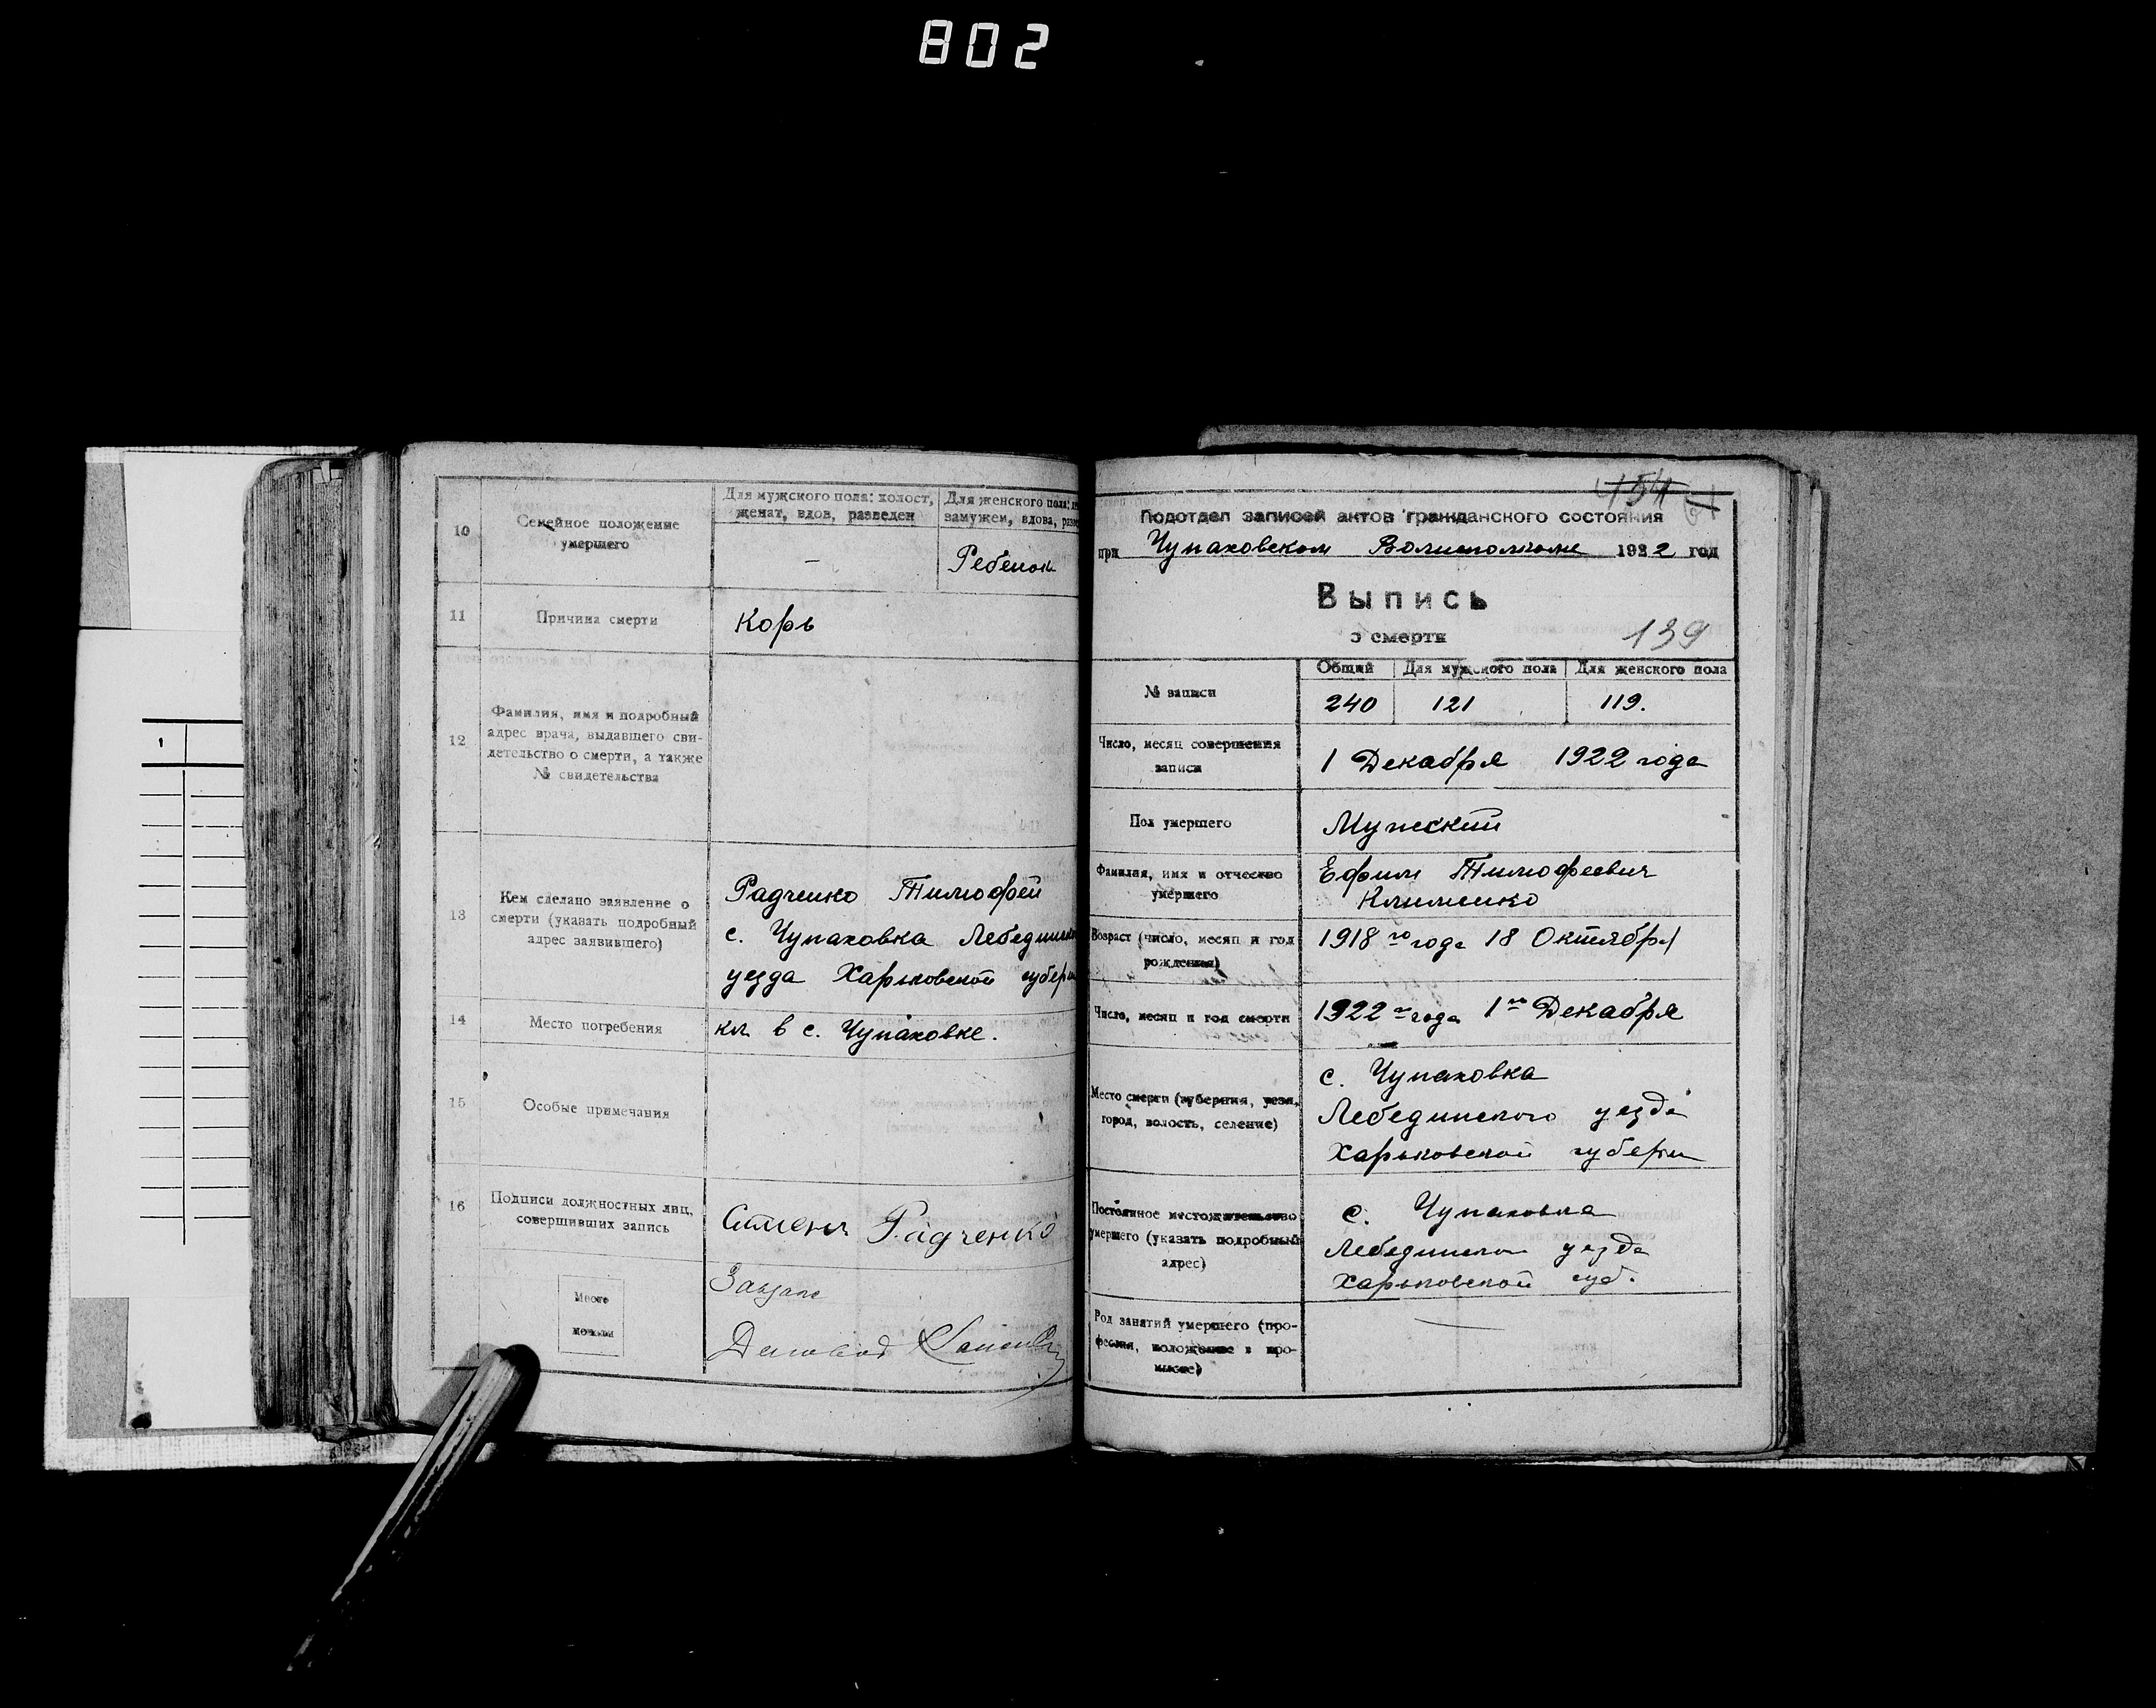 802
10
Семейное положение
умершего
Для мужского пола: холост,
женат, вдов, разведен
Для женского пола:
замужем, вдова,
–
Ребенок
11
Причина смерти
Корь
12
Фамилия, имя и подробный
адрес врача, выдавшего сви-
детельство о смерти, а также
№ свидетельства
13
Кем сделано заявление о
смерти (указать подробный
адрес заявившего)
Радченко Тимофей
с. Чупаховка
уезда Харьковской
14
Место погребения
кл. в с. Чупаховке.
15
Особые примечания
16
Подписи должностных лиц,
совершивших запись
Радченко
Место
печати
Деловод
154
Подотдел записей актов гражданского состояния
при Чупаховском Волисполкоме 1922 год
Выпись
о смерти
139
№ записи
Общий
Для мужского пола
Для женского пола
240
121
119.
Число, месяц совершения
записи
1 Декабря 1922 года
Пол умершего
Мужский
Фамилия, имя и отчество
умершего
Ефим Тимофеевич
Клименко
Возраст (число, месяц и год
рождения)
1918 го года 18 Октября
Число, месяц и год смерти
1922 го года 1 го Декабря
Место смерти (губерния, уезд,
город, волость, селение)
с. Чупаховка
Лебединского уезда
Харьковской губерни
Постоянное местожительство
умершего (указать подробный
адрес)
с. Чупаховка
уезда
Харьковской губ.
Род занятий умершего (про-
фессия, положение в про-
мысле)
—